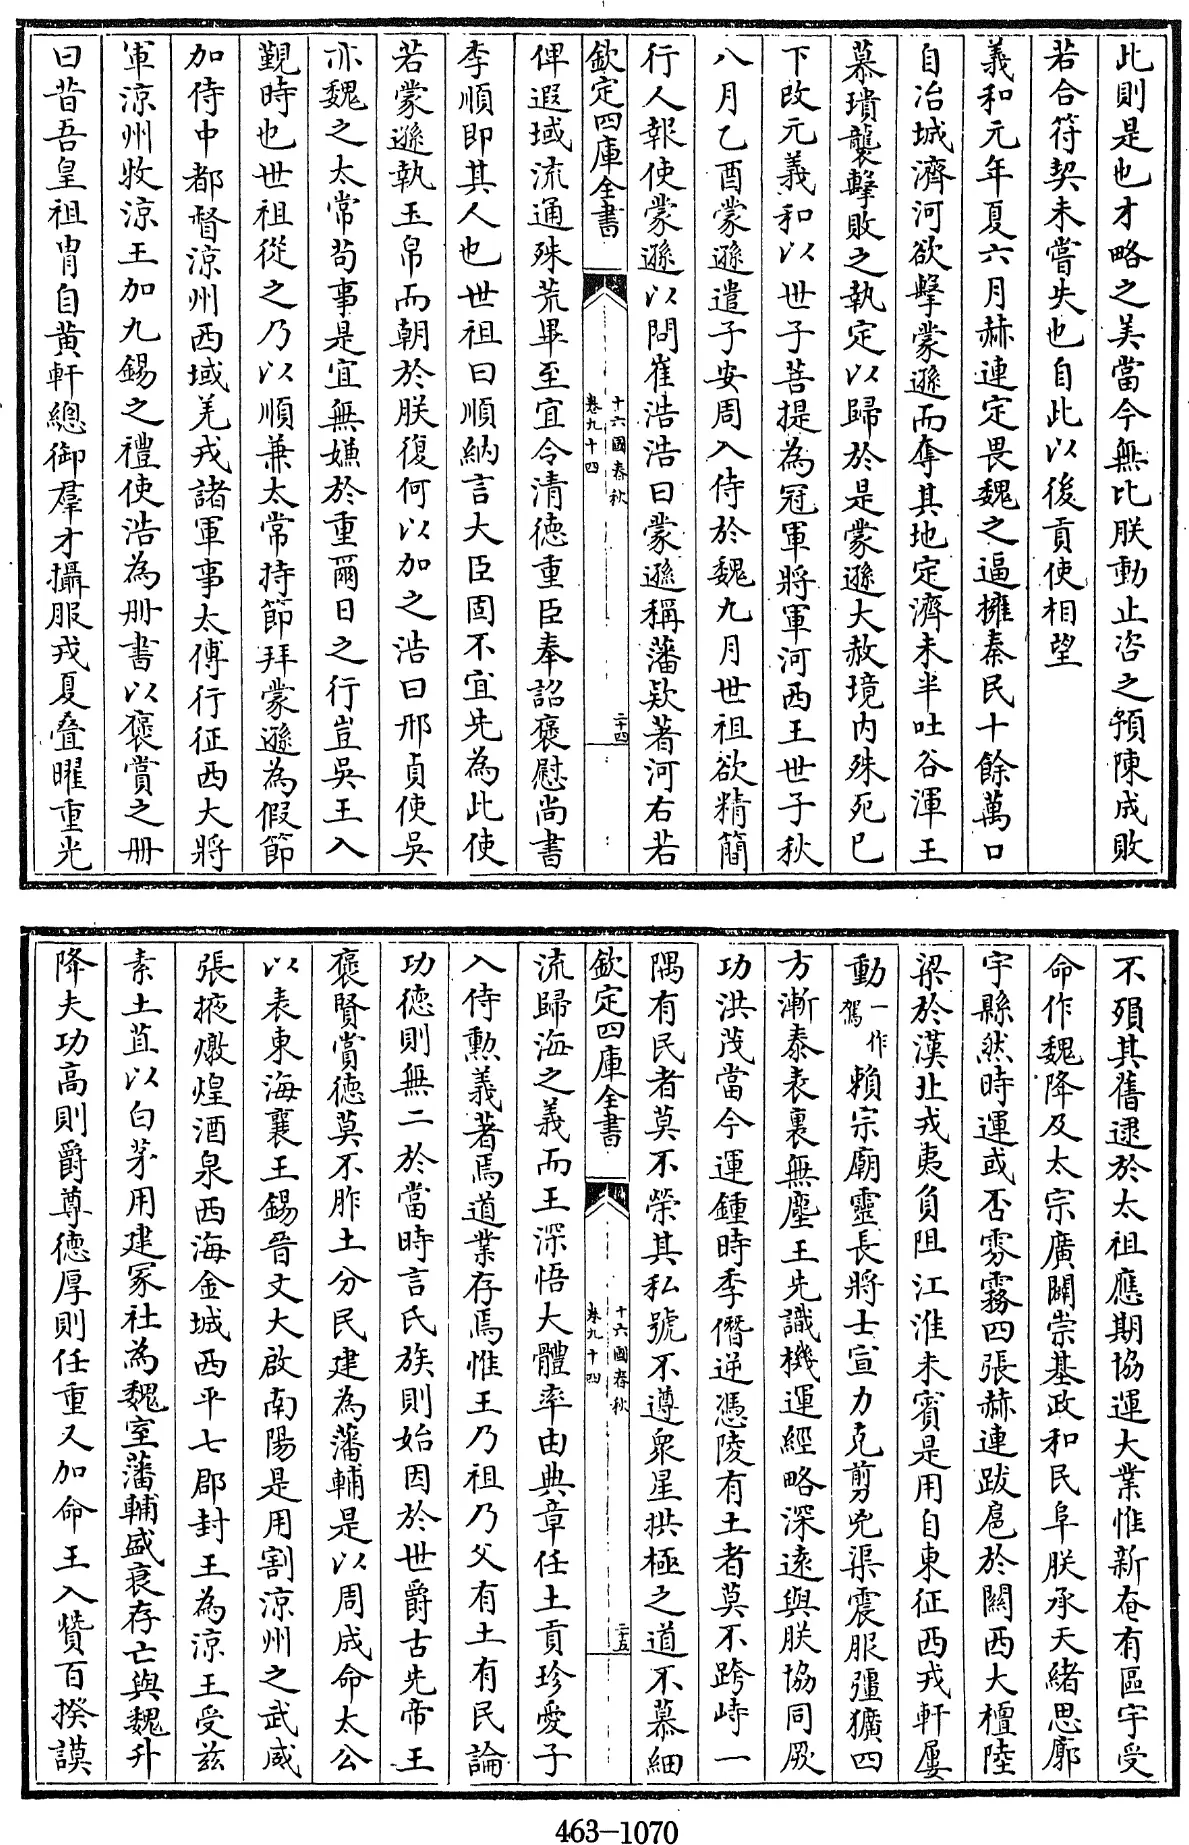 此則是也才略之美當今無比朕動止咨之預陳成敗
若合符契未嘗失也自此以後貢使相望
義和元年夏六月赫連定畏魏之逼擁秦民十餘萬口
自冶城濟河欲擊蒙遜而奪其地定濟未半吐谷渾王
慕璝襲擊敗之執定以歸於是蒙遜大赦境內殊死已
下改元義和以世子菩提為冠軍將軍河西王世子秋
八月乙酉蒙遜遣子安周入侍於魏九月世祖欲精簡
行人報使蒙遜以問崔浩浩曰蒙遜稱藩欵著河右若
欽定四庫全書
十六國春秋
卷九十四
二十四
俾遐域流通殊荒畢至宜令清德重臣奉詔褒慰尚書
李順即其人也世祖曰順納言大臣固不宜先為此使
若蒙遜執玉帛而朝於朕復何以加之浩曰邢貞使吳
亦魏之太常苟事是宜無嫌於重爾日之行豈吳王入
覲時也世祖從之乃以順兼太常持節拜蒙遜為假節
加侍中都督涼州西域羌戎諸軍事太傅行征西大將
軍涼州牧涼王加九錫之禮使浩為冊書以褒賞之冊
曰昔吾皇祖胄自黃軒總御羣才攝服戎夏疊曜重光
不殞其舊逮於太祖應期協運大業惟新奄有區宇受
命作魏降及太宗廣闢崇基政和民阜朕承天緒思廓
宇縣然時運或否雰霧四張赫連跋扈於關西大檀陸
梁於漢北戎夷負阻江淮未賓是用自東征西戎軒屢
動一作駕賴宗廟靈長將士宣力克剪兇渠震服彊獷四
方漸泰表裏無塵王先識機運經略深遠與朕協同厥
功洪茂當今運鍾時季僭逆憑陵有土者莫不跨峙一
隅有民者莫不榮其私號不遵衆星拱極之道不慕細
欽定四庫全書
十六國春秋
卷九十四
二十五
流歸海之義而王深悟大體率由典章任土貢珍愛子
入侍勲義著焉道業存焉惟王乃祖乃父有土有民論
功德則無二於當時言氏族則始因於世爵古先帝王
褒賢賞德莫不胙土分民建為藩輔是以周成命太公
以表東海襄王錫晉文大啟南陽是用割涼州之武威
張掖燉煌酒泉西海金城西平七郡封王為涼王受茲
素土苴以白茅用建冢社為魏室藩輔盛衰存亡與魏升
降夫功高則爵尊德厚則任重又加命王入贊百揆謨
463-1070